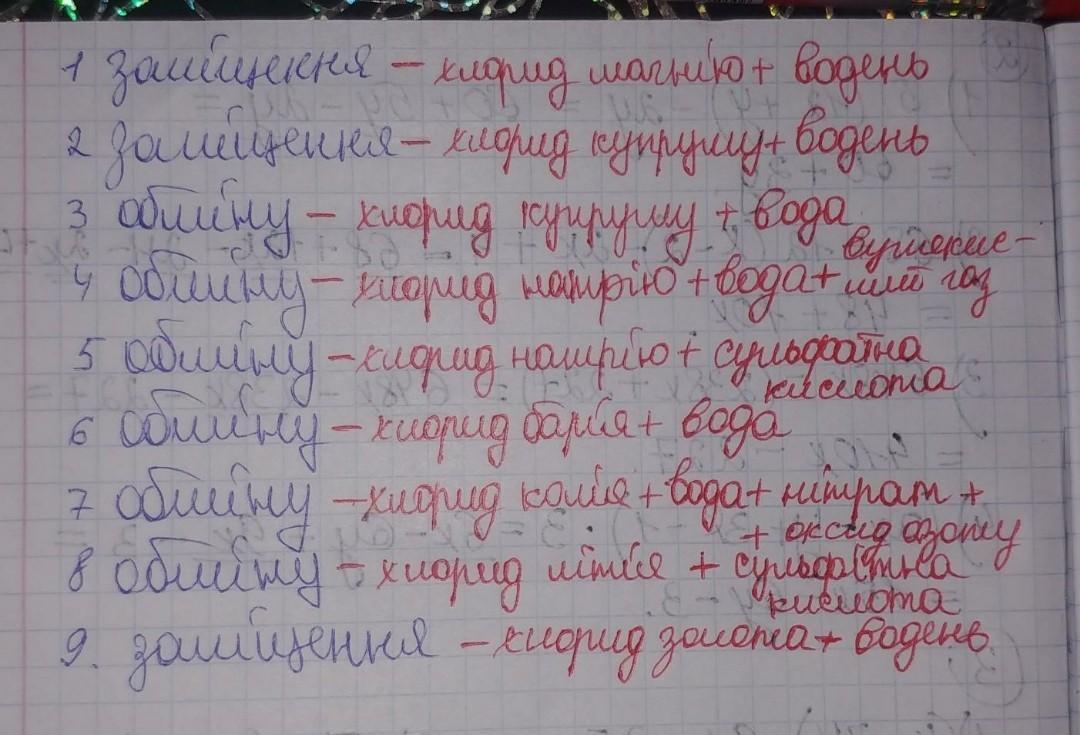 1 заміщення – хлорид магнію + водень
2 заміщення – хлорид купруму + водень
3 обміну – хлорид купруму + вода
4 обміну – хлорид натрію + вода + вуглекис-
лий газ
5 обміну – хлорид натрію + сульфатна
кислота
6 обміну – хлорид барія + вода
7 обміну – хлорид калія + вода + нітрат +
+ оксид азоту
8 обміну – хлорид літія + сульфітна
кислота
9. заміщення – хлорид золота + водень